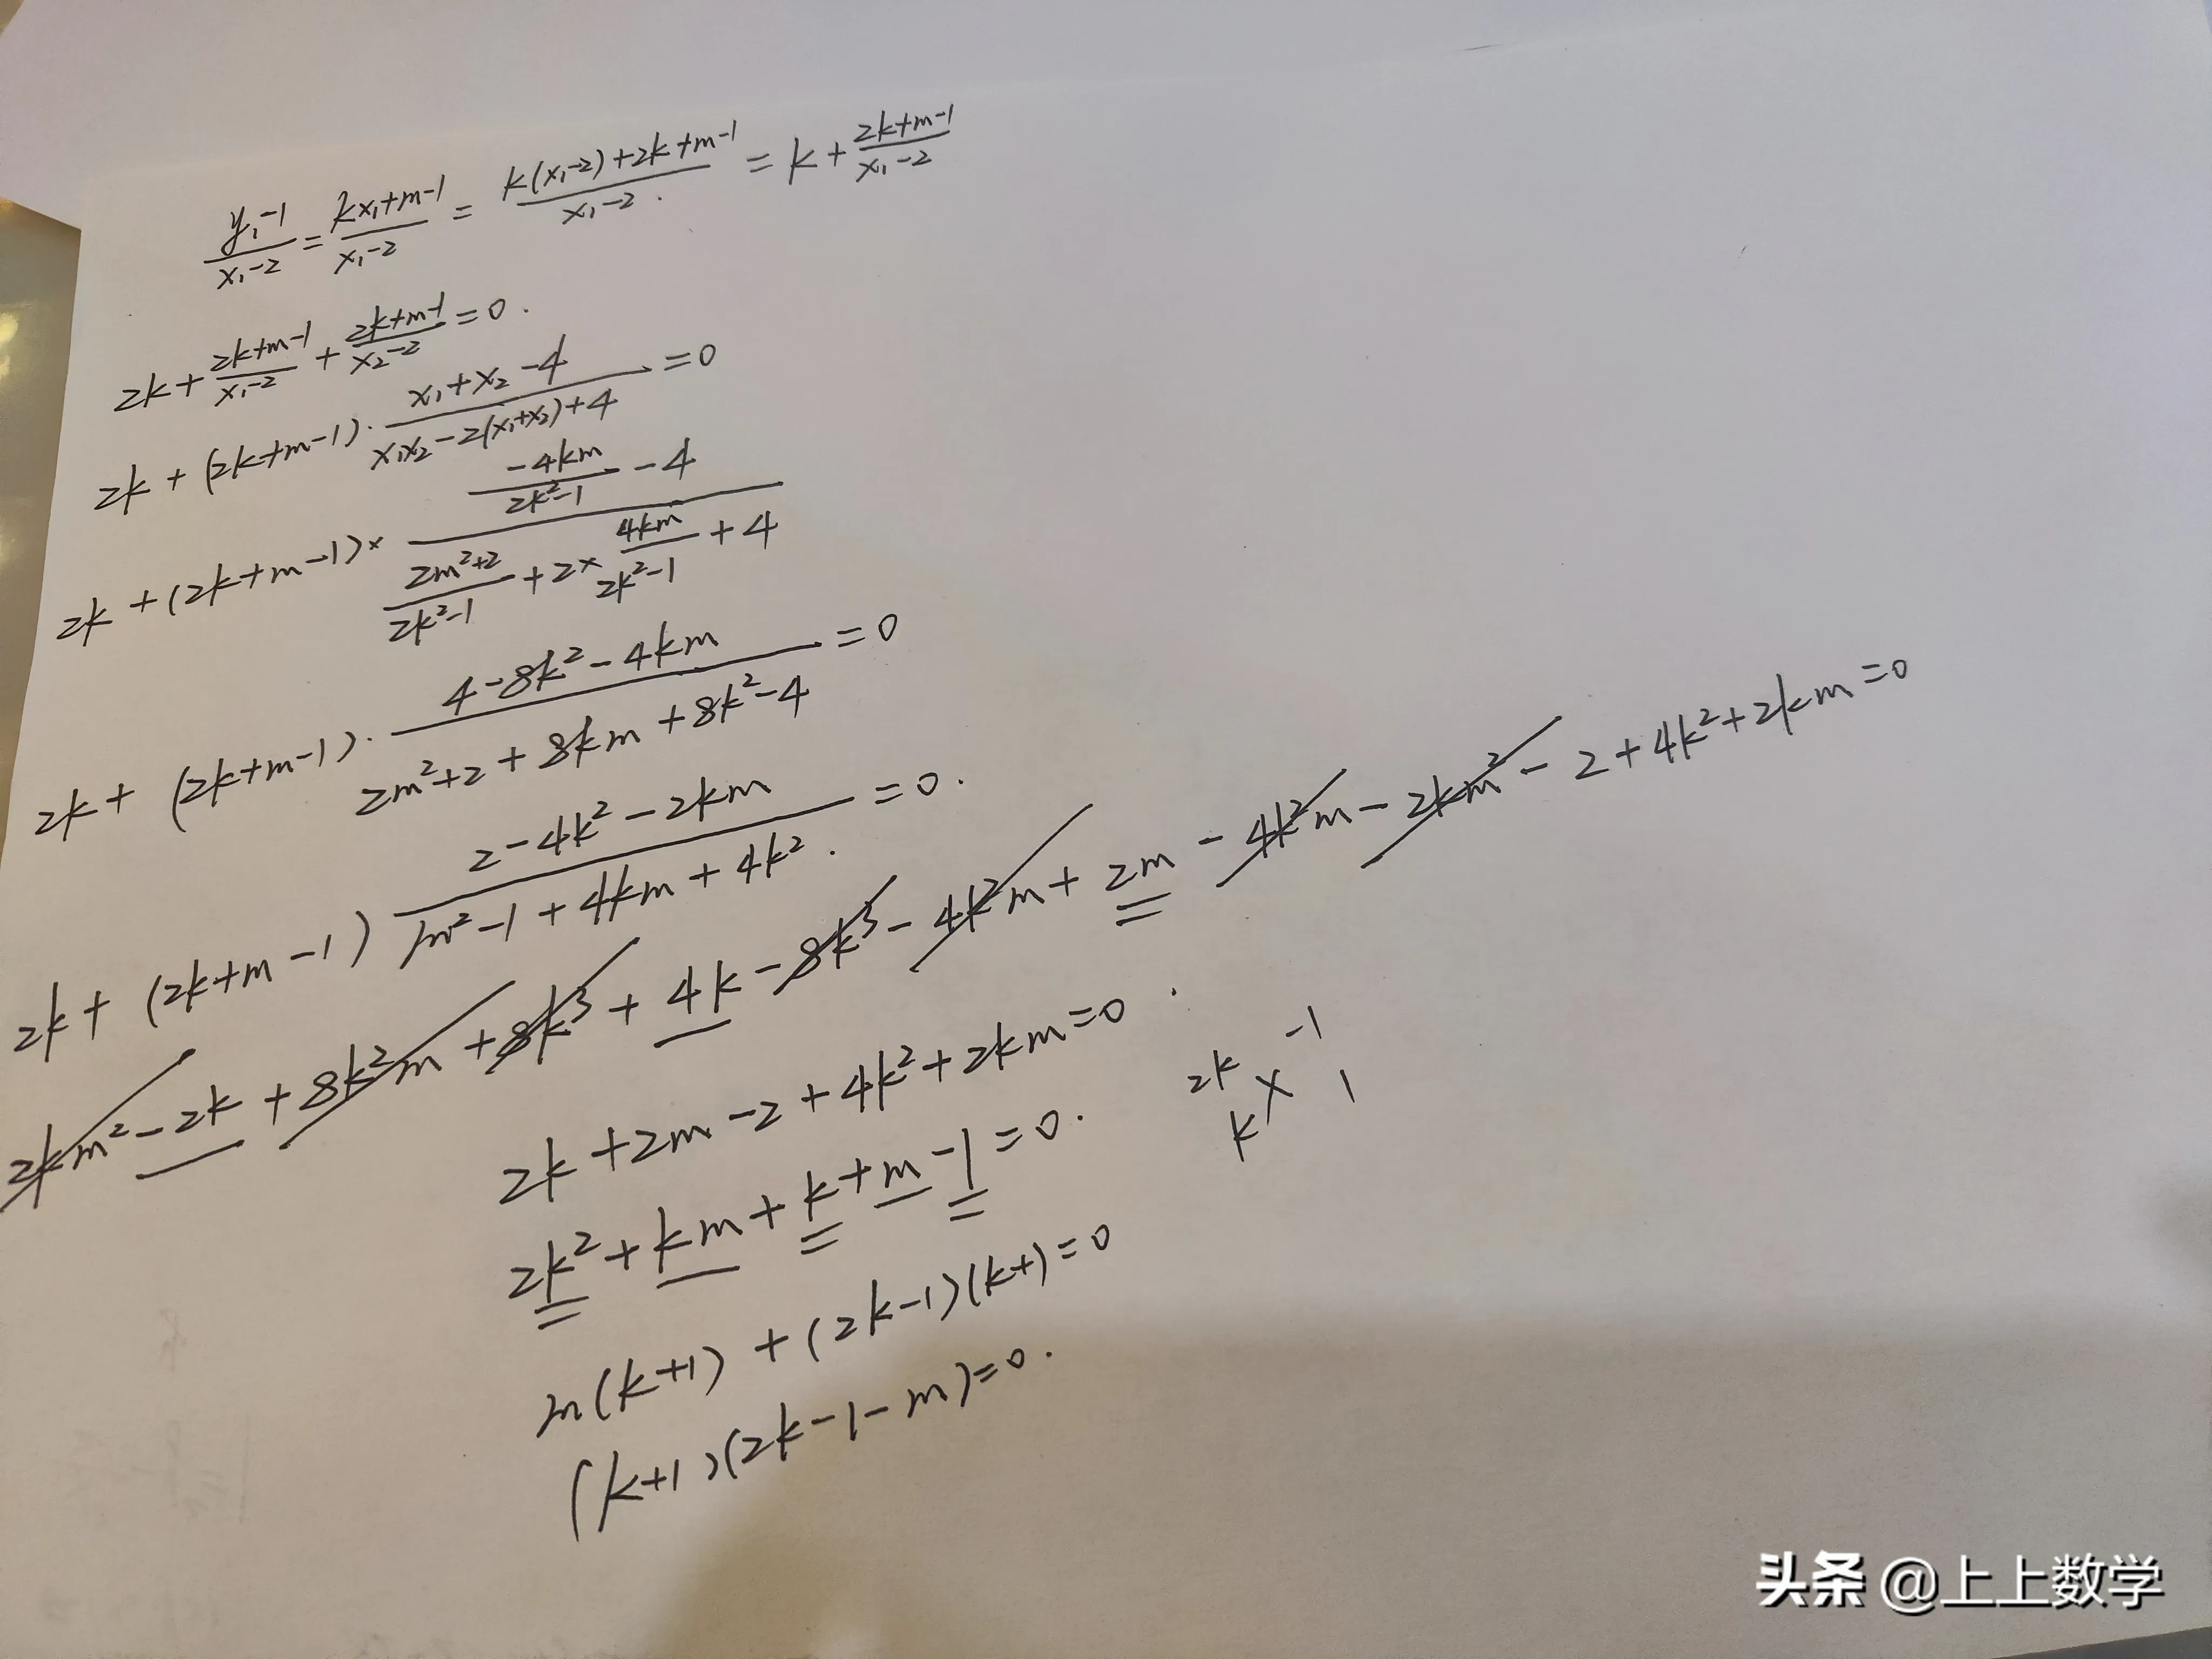 (y₁-1)/(x₁-2) = (kx₁+m-1)/(x₁-2) = (k(x₁-2)+2k+m-1)/(x₁-2) = k + (2k+m-1)/(x₁-2)
2k + (2k+m-1)/(x₁-2) + (2k+m-1)/(x₂-2) = 0.
2k + (2k+m-1)· (x₁+x₂-4)/(x₁x₂-2(x₁+x₂)+4) = 0
2k + (2k+m-1)× ((-4km)/(2k²-1) - 4)/((2m²+2)/(2k²-1) + 2×(4km)/(2k²-1) + 4)
2k + (2k+m-1)· (4-8k²-4km)/(2m²+2+8km+8k²-4) = 0
2k + (2k+m-1) (2-4k²-2km)/(m²-1+4km+4k²) = 0.
2km²-2k+8k²m+8k³+4k-8k³-4k²m+2m-4k²m-2km²-2+4k²+2km=0
2k+2m-2+4k²+2km=0.
2k²+km+k+m-1=0.
2k -1
k 1
m(k+1)+(2k-1)(k+)=0
(k+1)(2k-1-m)=0.
头条 @上上数学